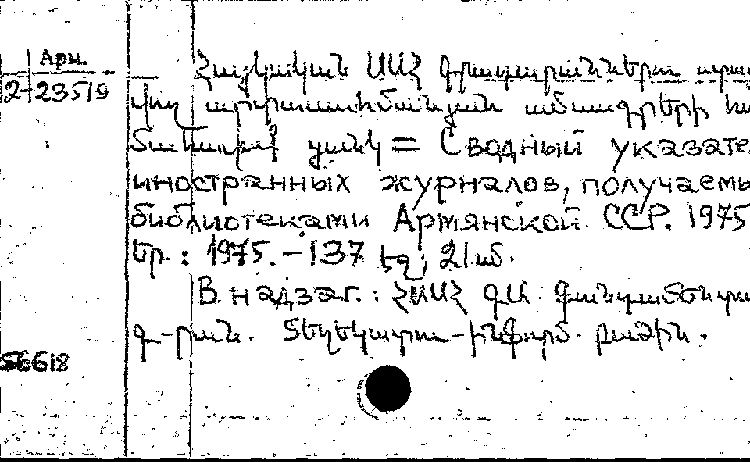 Арм.
2-23519
Հայկական ՍՍՀ գրադարաններում
արտասահմանյան ամսագրերի
ցանկ = Сводный указате
иностранных журналов, получаемы
библиотеками Армянской ССР. 1975
Եր. : 1975. – 137 էջ; 21սմ.
В надзаг.: ՀՍՍՀ ԳԱ
գ-րան. Տեղեկատու-ինֆորմ. բաժին.
56618